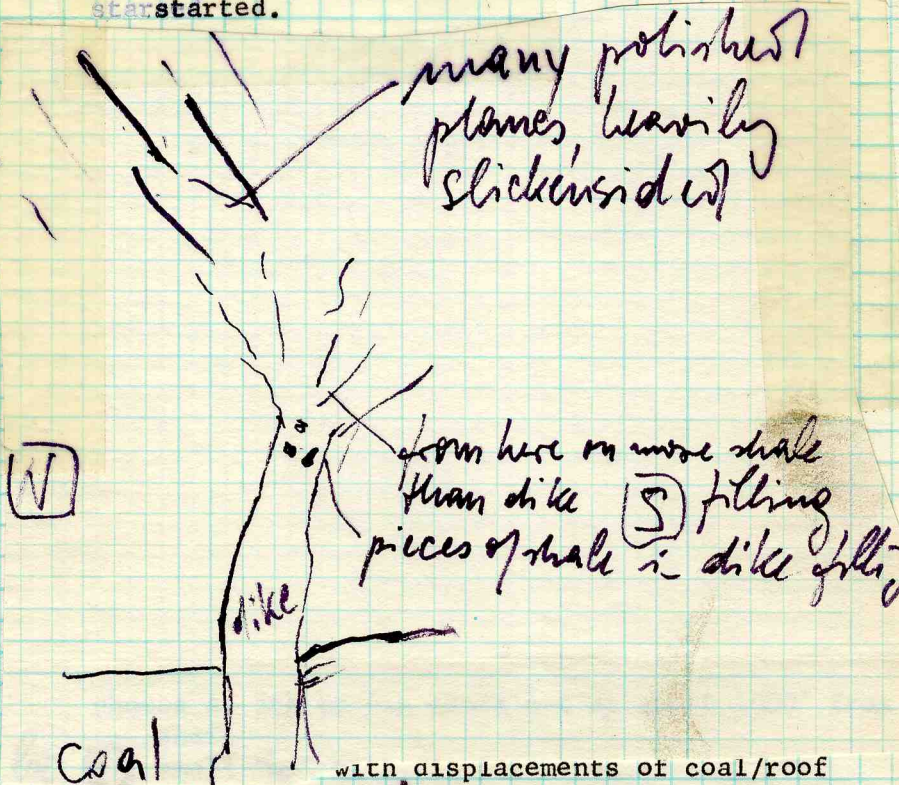 starstarted.
many polished
planes, heavily
slickensided
N
from here on more shale
than dike S filling
pieces of shale in dike filling
dike
Coal
with displacements of coal/roof